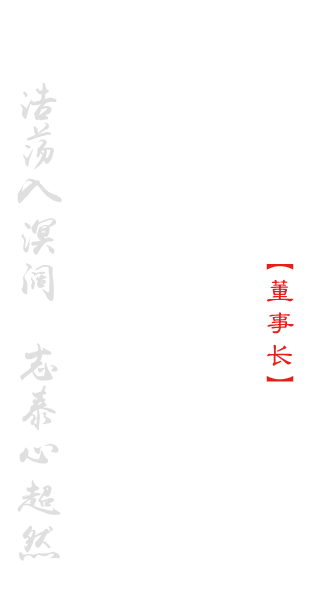 【董事长】
浩荡入溟阔 志泰心超然